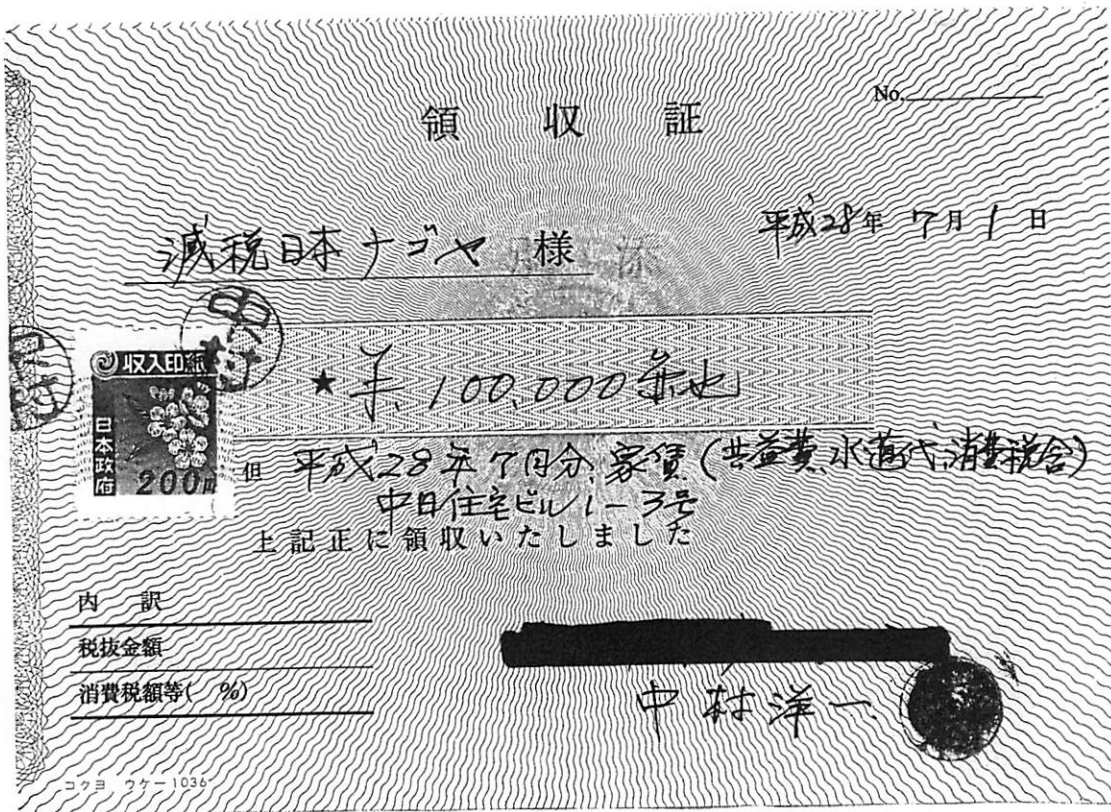 No.
領収証
平成28年7月1日
減税日本ナゴヤ 様
収入印紙
日本政府
200円
★ ¥.100,000亦也
但 平成28年7月分、家賃(共益費、水道代、消費税含)
中日住宅ビル1-3号
上記正に領収いたしました
内訳
税抜金額
消費税額等( %)
中村洋一
コクヨ ウケ-1036